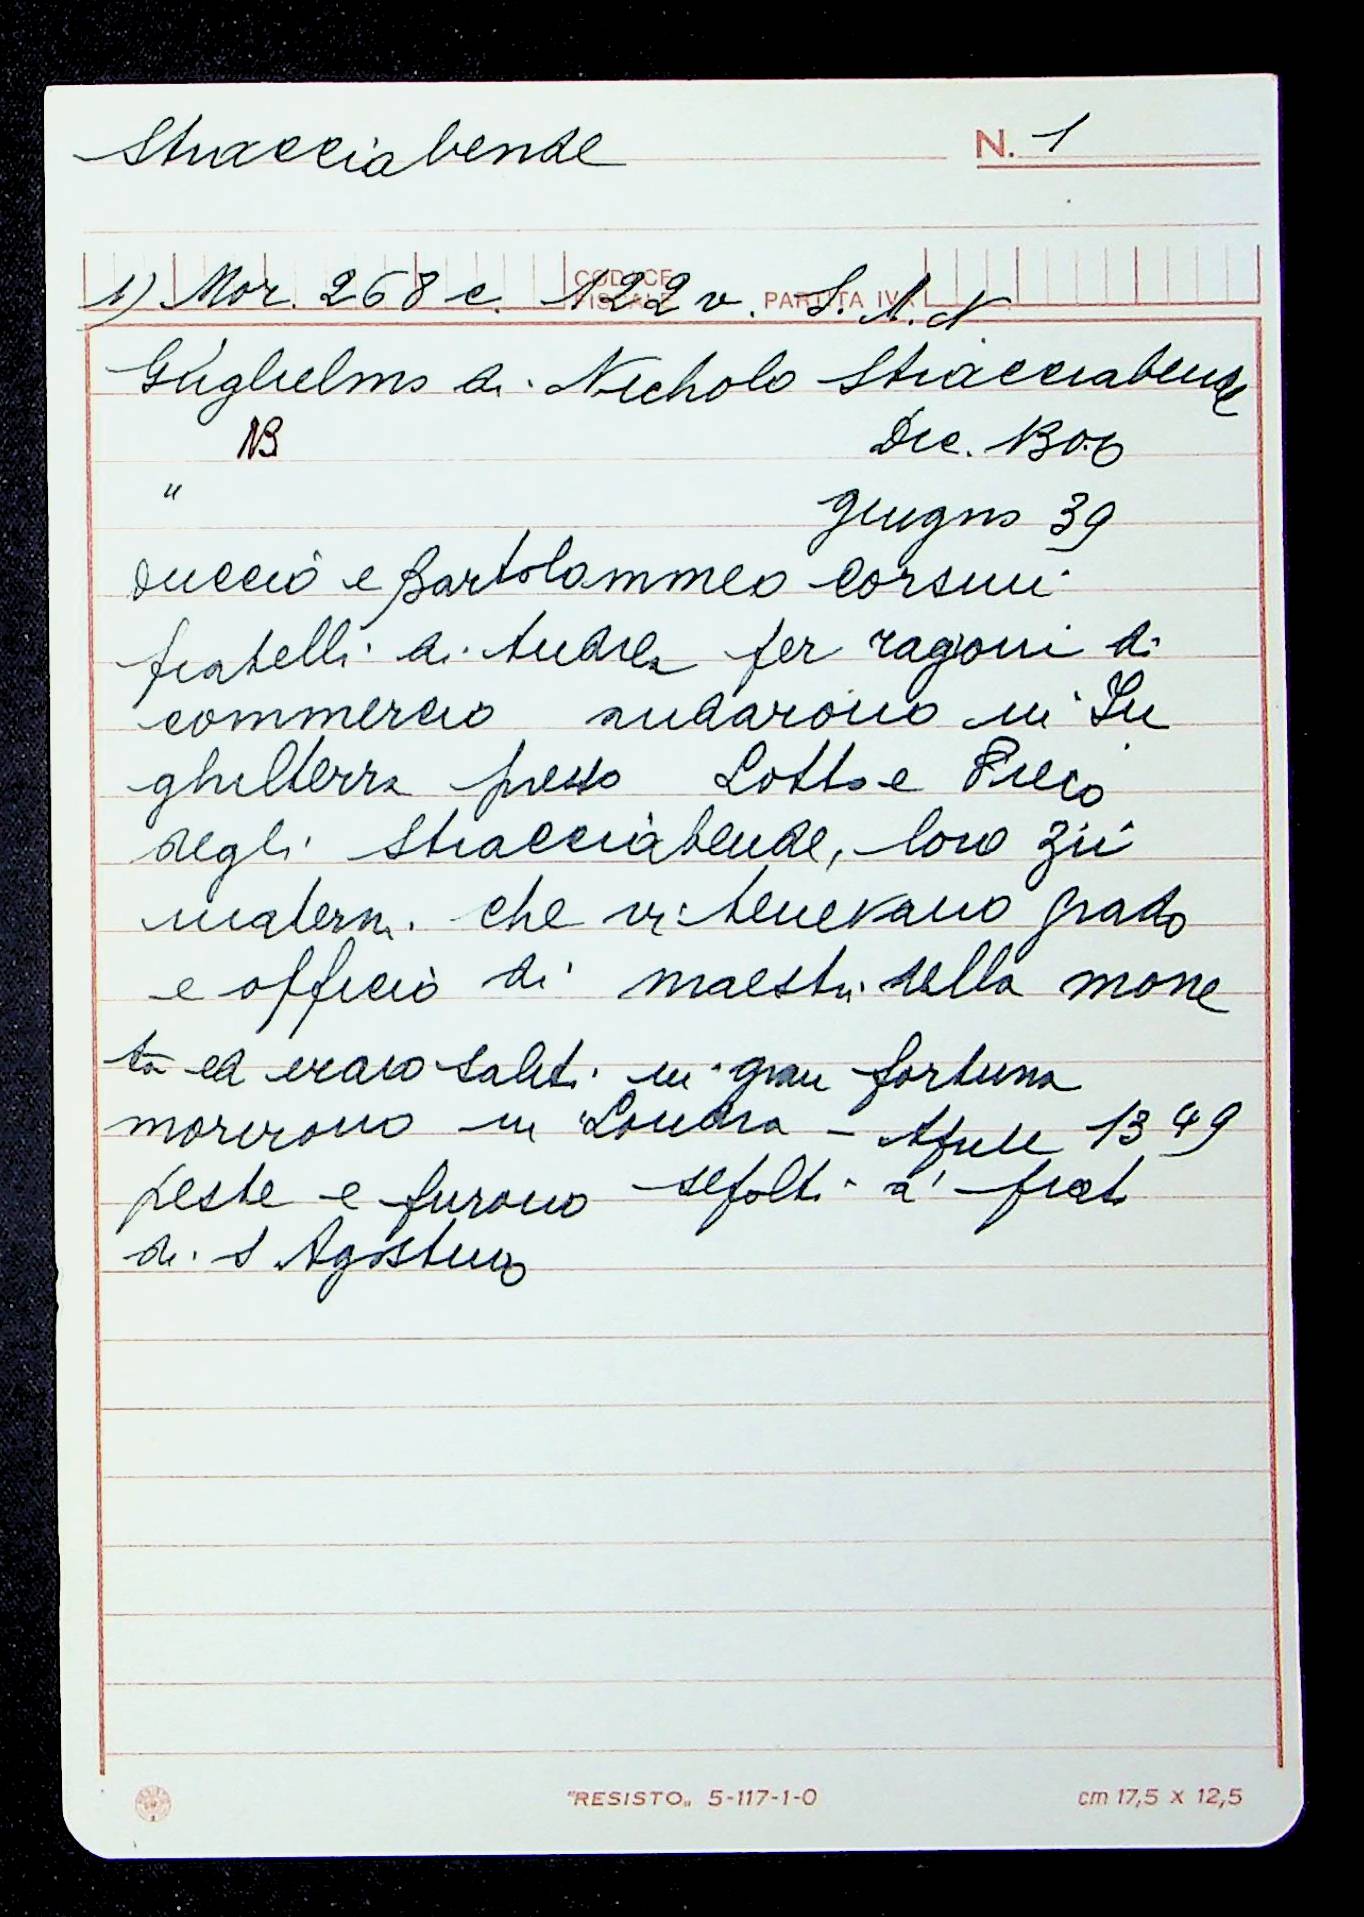 Stracciabende N. 1
CODICE FISCALE PARTITA IVA
1) Mor. 268 c. 122 v. S. M. N
Guglielmo di Nicholo Stracciabende
NB Dic. 1306
" giugno 39
Duccio e Bartolommeo Corsini
fratelli di Andrea per ragioni di
commercio andarono in In
ghilterra presso Lotto e
degli Stracciabende, loro zii
materni che vi tenevano grado
e officio di maestri della mone
ta ed erano saliti in gran fortuna
morirono in Londra - Aprile 1349
peste e furono sepolti a' frati
di S Agostino
"RESISTO„ 5-117-1-0 cm 17,5 x 12,5